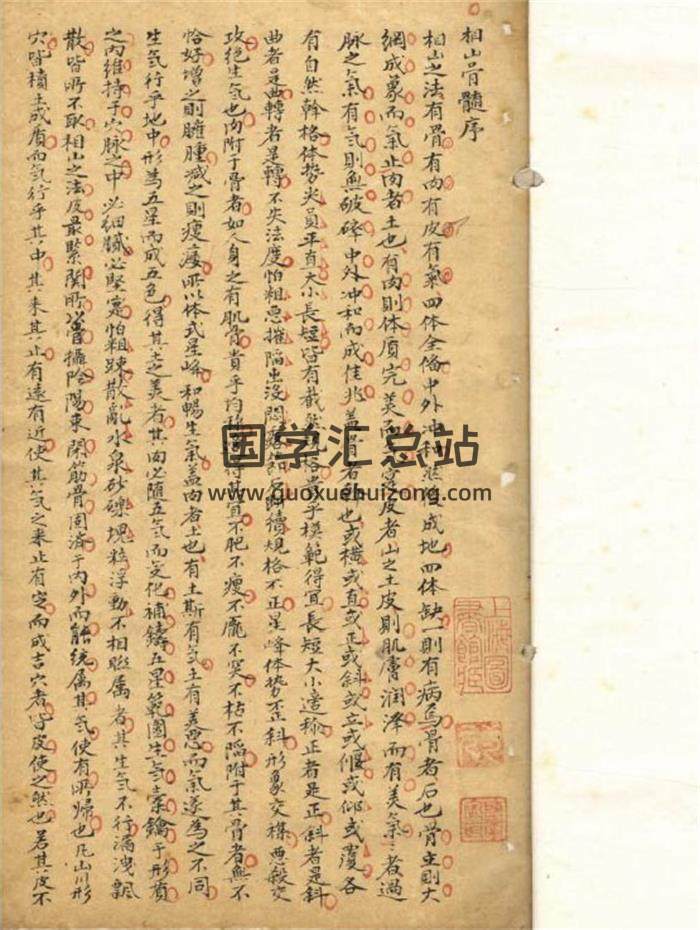 相山骨髓序
相山之法有骨有肉有皮有氣四体全俻中外冲和然後成地四体缺一則有病焉骨者石也骨立則大
綱成象而氣止肉者土也有肉則体質完美而皮者山之土皮則肌膚潤澤而有美氣氣者過
脉之氣有氣則無破碎中外冲和而成佳兆盖骨者也或横或直或正或斜或立或偃或仰或覆各
有自然幹格体势尖員平直大小長短皆有截然格貴乎模範得宜長短大小造稱正者是正斜者是斜
曲者是曲轉者是轉不失法度怕粗恶摧陷出没断續規格不正星峰体势不正科形象交襍恶殺交
攻绝生氣也肉附于骨者如人身之有肌骨貴乎均得其宜不肥不瘦不龐不突不枯不陷附于其骨者無不
恰好增之則臃腫減之則瘦痿所以体式星峰和暢生氣盖肉者土也有土斯有氣土有美恶而氣遂為之不同
生氣行乎地中形為五星而成五色得其土之美者其肉必随五氣而变化補鑄五星範圍生氣橐鑰于形質
之内維持于穴脉之中必细膩必堅寔怕粗踈散亂水泉砂礫塊粒浮動不相聮属者其生氣不行漏洩飄
散皆所不取相山之法皮最緊関所以管攝陰陽束関筋骨周済于内外而能统属其氣使有所歸也凡山川形
穴皆積土成質而氣行乎其中其来其止有遠有近使其氣之来止有定而成吉穴者皆皮使之然也若其皮不
国学汇总站
www.guoxuehuizong.com
上海圖
書館藏